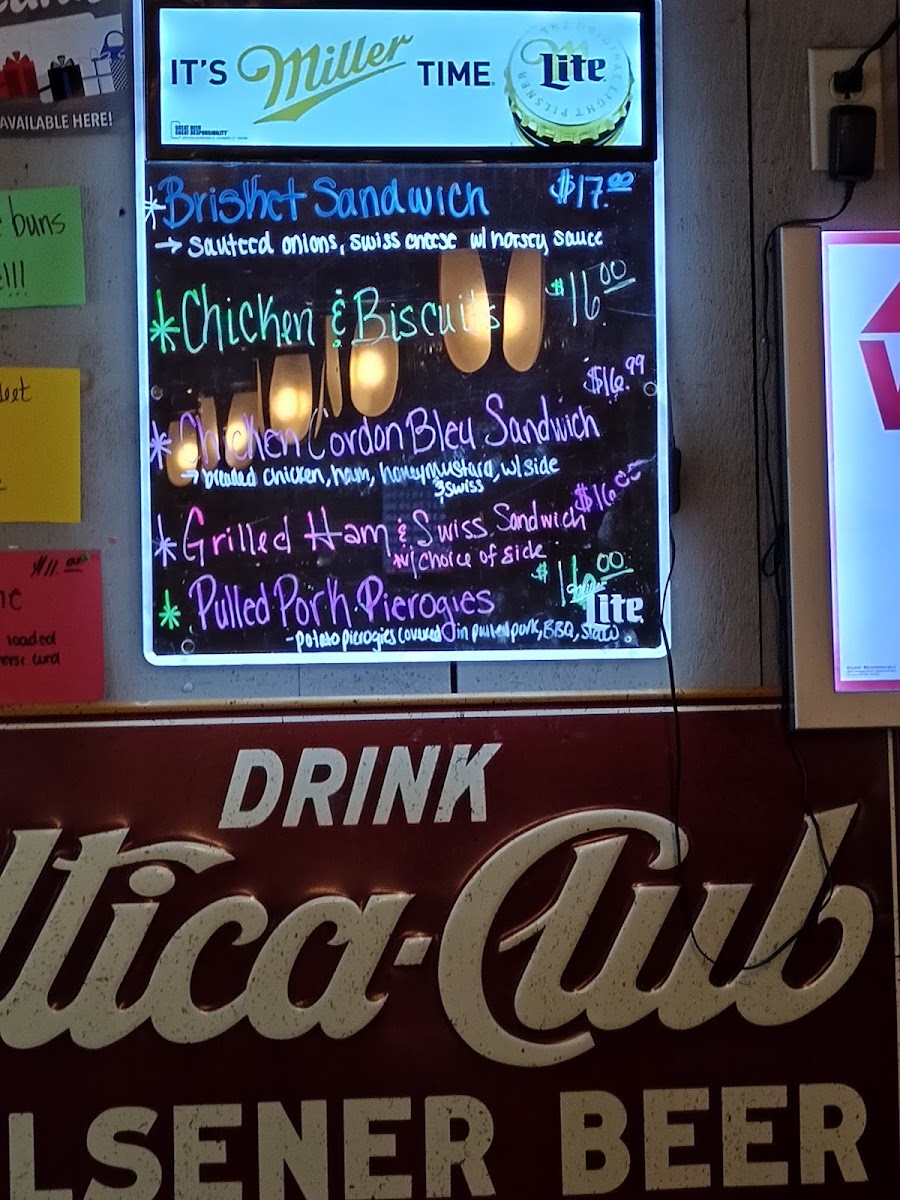 AVAILABLE HERE!
IT'S Miller TIME
Lite
buns
!!!
Brisket Sandwich $17.00
→ sauteed onions, swiss cheese w/ horsey sauce
Chicken & Biscuits $16.00
$16.99
Chicken Cordon Bleu Sandwich
→ breaded chicken, ham, honeymustard, w/ side
& swiss
Grilled Ham & Swiss Sandwich $16.00
w/ choice of side
Pulled Pork Pierogies $16.00
Lite
- potato pierogies covered in pulled pork, BBQ, slaw
$11.00
loaded
curd
DRINK
Utica-Club
PILSENER BEER